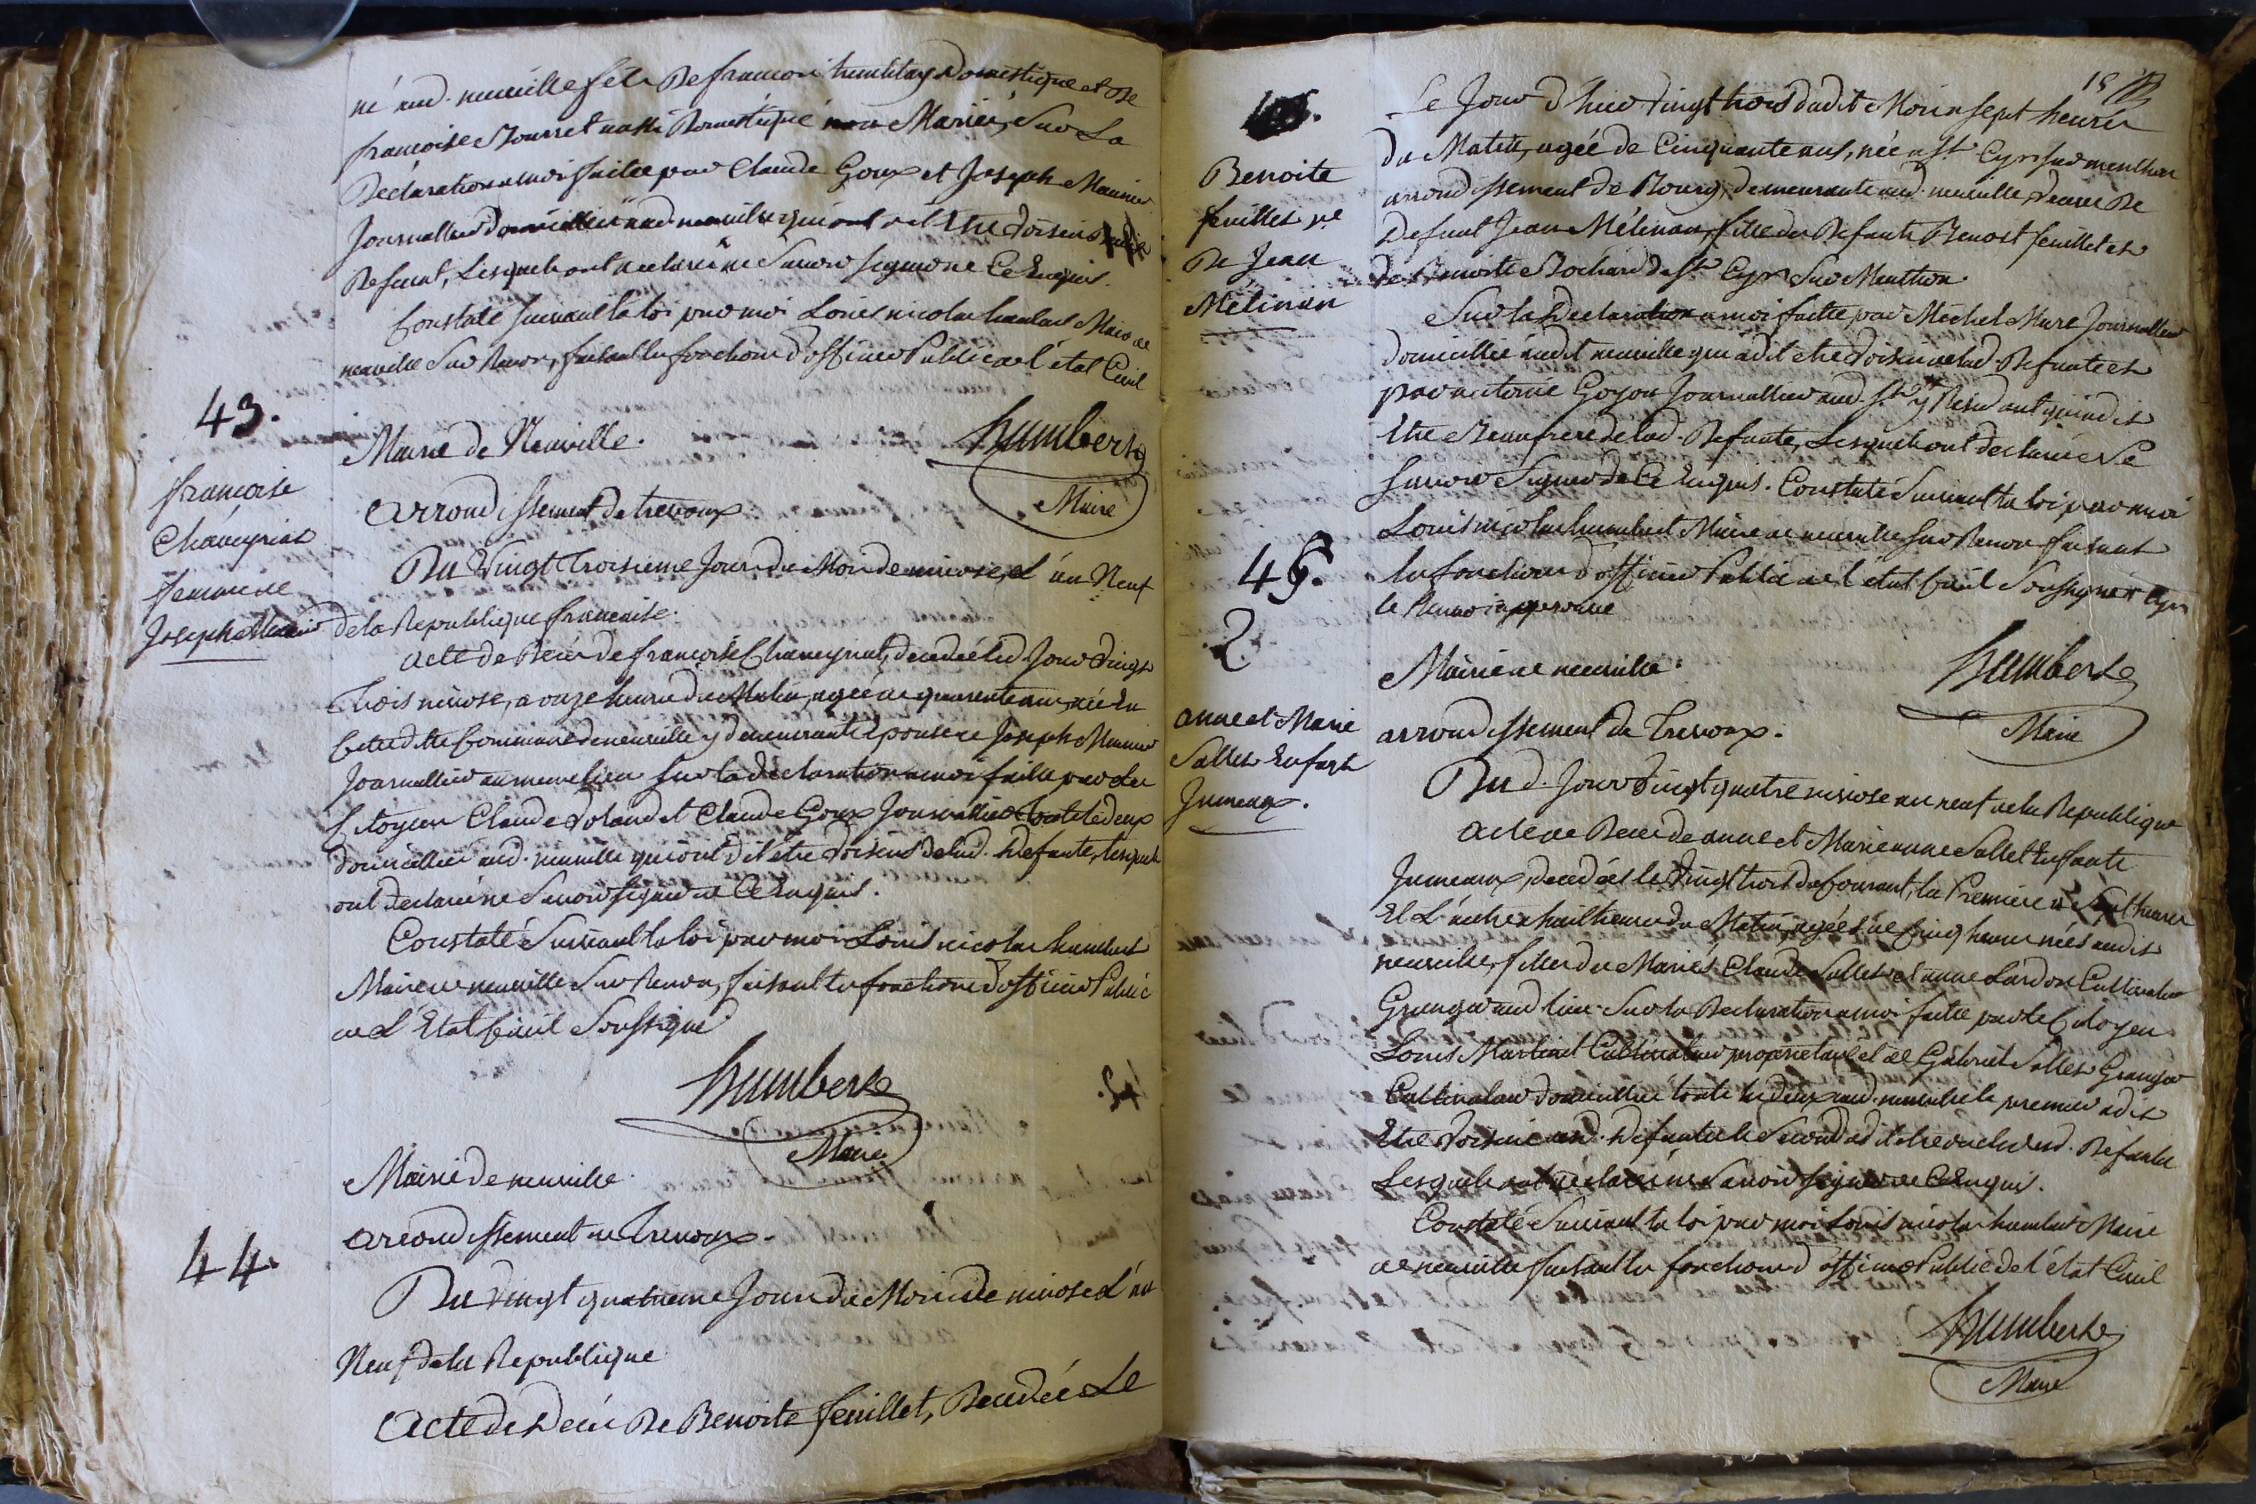 né aud. neuville fils De francois humblay Domestique et De
francoise Bourret aussi Domestique non Mariés, Sur La
Declaration a moi faitte par Claude Goux et Joseph Meunier
Journallier domicilliés aud neuville qui ont dit être voisins dudit
Defunt, Lesquels ont declaré ne Savoir signer de Ce Enquis.
Constaté suivant la loi par moi Louis nicolas humbert Maire de
neuville Sur Renon, faisant les fonctions d'officier Public de l'état Civil
43.
Mairie de Neuville.
humbert
Maire
francoise
Chaveyriat
femme de
Joseph Meunier
arrondissement de trevoux
Du Vingt Troisieme Jour du Mois de nivose, l'an Neuf
de la Republique francaise.
Acte de Decés de francoise Chaveyriat, decedée led. Jour vingt
Trois nivose, a onze heures du Matin, agée de quarente ans, née En
Cette ditte Commune de neuville y demeurante Epouse de Joseph Meunier
Journallier au meme lieu sur la declaration a moi faitte par les
Citoyens Claude Voland et Claude Goux Journalliers tout les deux
domicilliés aud. neuville qui ont dit être voisins de lad. Defunte, lesquels
ont declaré ne Savoir signer de Ce Enquis.
Constaté Suivant la loi par moi Louis nicolas humbert
Maire de neuville Sur Renon, faisant les fonctions d'officier Public
de L'Etat Civil Soussigné
humbert
Maire
Mairie de neuville.
44.
arrondissement de Trevoux.
Du vingt quatrieme Jour du Mois de nivose L'an
Neuf de la Republique
Acte de Decés De Benoite feuillet, Decedée Le
15
Le Jour d'hier vingt trois dudit Mois a sept heures
du Matin, agée de Cinquante ans, née a St Cyr sur menthon
arrondissement de Bourg, demeurante aud. neuville, veuve De
Benoite
feuillet ve
De Jean
Mélinan
Defunt Jean Mélinan, fille des Defunts Benoit feuillet et
de Benoite Bochard de St Cyr Sur Menthon
Sur la declaration a moi faitte par Michel Mure Journallier
domicillié audit neuville qui a dit etre voisin de lad. Defunte et
par antoine Goyon Journallier aud. St y Residant qui a dit
Etre Beaufrere de lad. Defunte, Lesquels ont declaré Ne
Savoir Signer de Ce Enquis. Constaté Suivant la loi par moi
Louis nicolas humbert Maire de neuville sur Renon faisant
45.
les fonctions d'officier Public de l'état Civil Soussigné Cyr
le Renvoi approuvé
humbert
Maire
Mairie de neuville.
anne et Marie
Sallet Enfants
Jumeaux.
arrondissement de Trevoux.
Du d. Jour vingt quatre nivose an neuf de la Republique
Acte de Decés de anne et Marie anne Sallet Enfants
Jumeaux, decedées le vingt trois du Courant, la Premiere a Sept heures
Et L'autre a huit heures du Matin, agées de Cinq heures nées audit
neuville, filles des Mariés Claude Sallet et anne Lardon Cultivateur
Granger aud lieu. Sur la Declaration a moi faitte par le Citoyen
Louis Martinet Cultivateur proprietaire et de Gabriel Sallet Granger
Cultivateur domicilliés touts les deux aud. neuville le premier a dit
Etre Voisin aud. Defuntes le Second a dit etre oncle aud. Defuntes
Lesquels ont declaré ne Savoir signer de Ce Enquis.
Constaté Suivant la loi par moi Louis nicolas humbert Maire
de neuville faisant les fonctions d'officier Public de l'état Civil
humbert
Maire